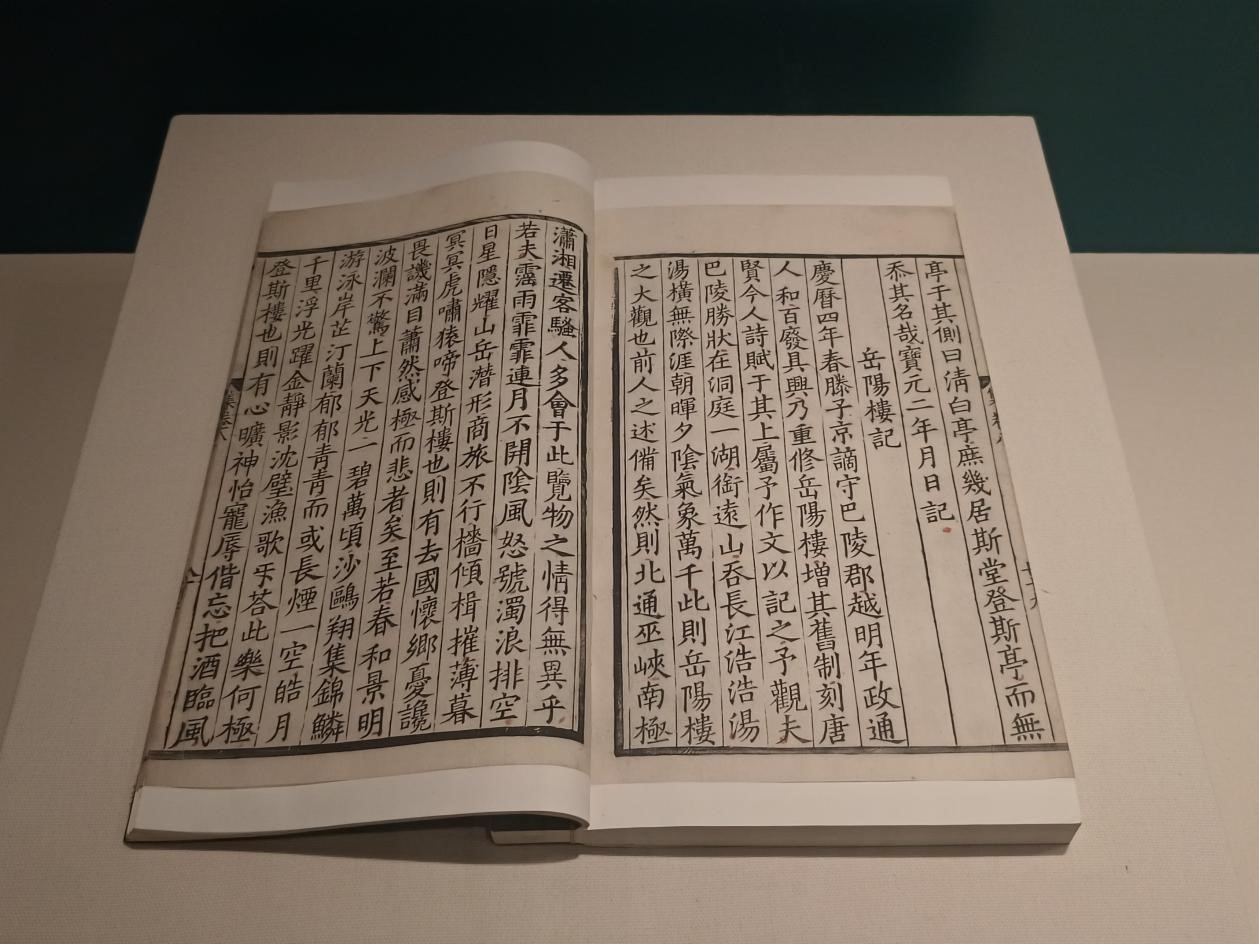 亭于其側曰清白亭庶幾居斯堂登斯亭而無
忝其名哉寶元二年月日記
岳陽樓記
慶曆四年春滕子京謫守巴陵郡越明年政通
人和百廢具興乃重修岳陽樓增其舊制刻唐
賢今人詩賦于其上屬予作文以記之予觀夫
巴陵勝狀在洞庭一湖銜遠山吞長江浩浩湯
湯橫無際涯朝暉夕陰氣象萬千此則岳陽樓
之大觀也前人之述備矣然則北通巫峽南極
瀟湘遷客騷人多會于此覽物之情得無異乎
若夫霪雨霏霏連月不開陰風怒號濁浪排空
日星隱耀山岳潛形商旅不行檣傾楫摧薄暮
冥冥虎嘯猿啼登斯樓也則有去國懷鄉憂讒
畏譏滿目蕭然感極而悲者矣至若春和景明
波瀾不驚上下天光一碧萬頃沙鷗翔集錦鱗
游泳岸芷汀蘭郁郁青青而或長煙一空皓月
千里浮光躍金靜影沈璧漁歌㸦荅此樂何極
登斯樓也則有心曠神怡寵辱偕忘把酒臨風